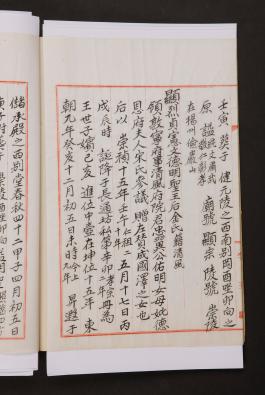 壬寅 葬于 健元陵之西南別岡酉坐卯向之
原 諡 純文肅武敬仁彰孝 廟號 顯宗 陵號 崇陵
在楊州儉巖山
顯烈貞憲文德明聖王后金氏 籍清風
領敦寧府事清風府院君忠翼公佑明女母德
恩府夫人宋氏參議 贈左贊成國澤之女也
后以 崇禎十五年壬午 仁祖二十年 五月十七日丙
戌辰時 誕降于長通坊私第辛卯 孝宗 冊為
王世子嬪己亥 進位中壼在坤位十五年 東
朝九年癸亥十二月初五日未時 今上九年 昇遐于
儲承殿之西別堂春秋四十二甲子四月初五日